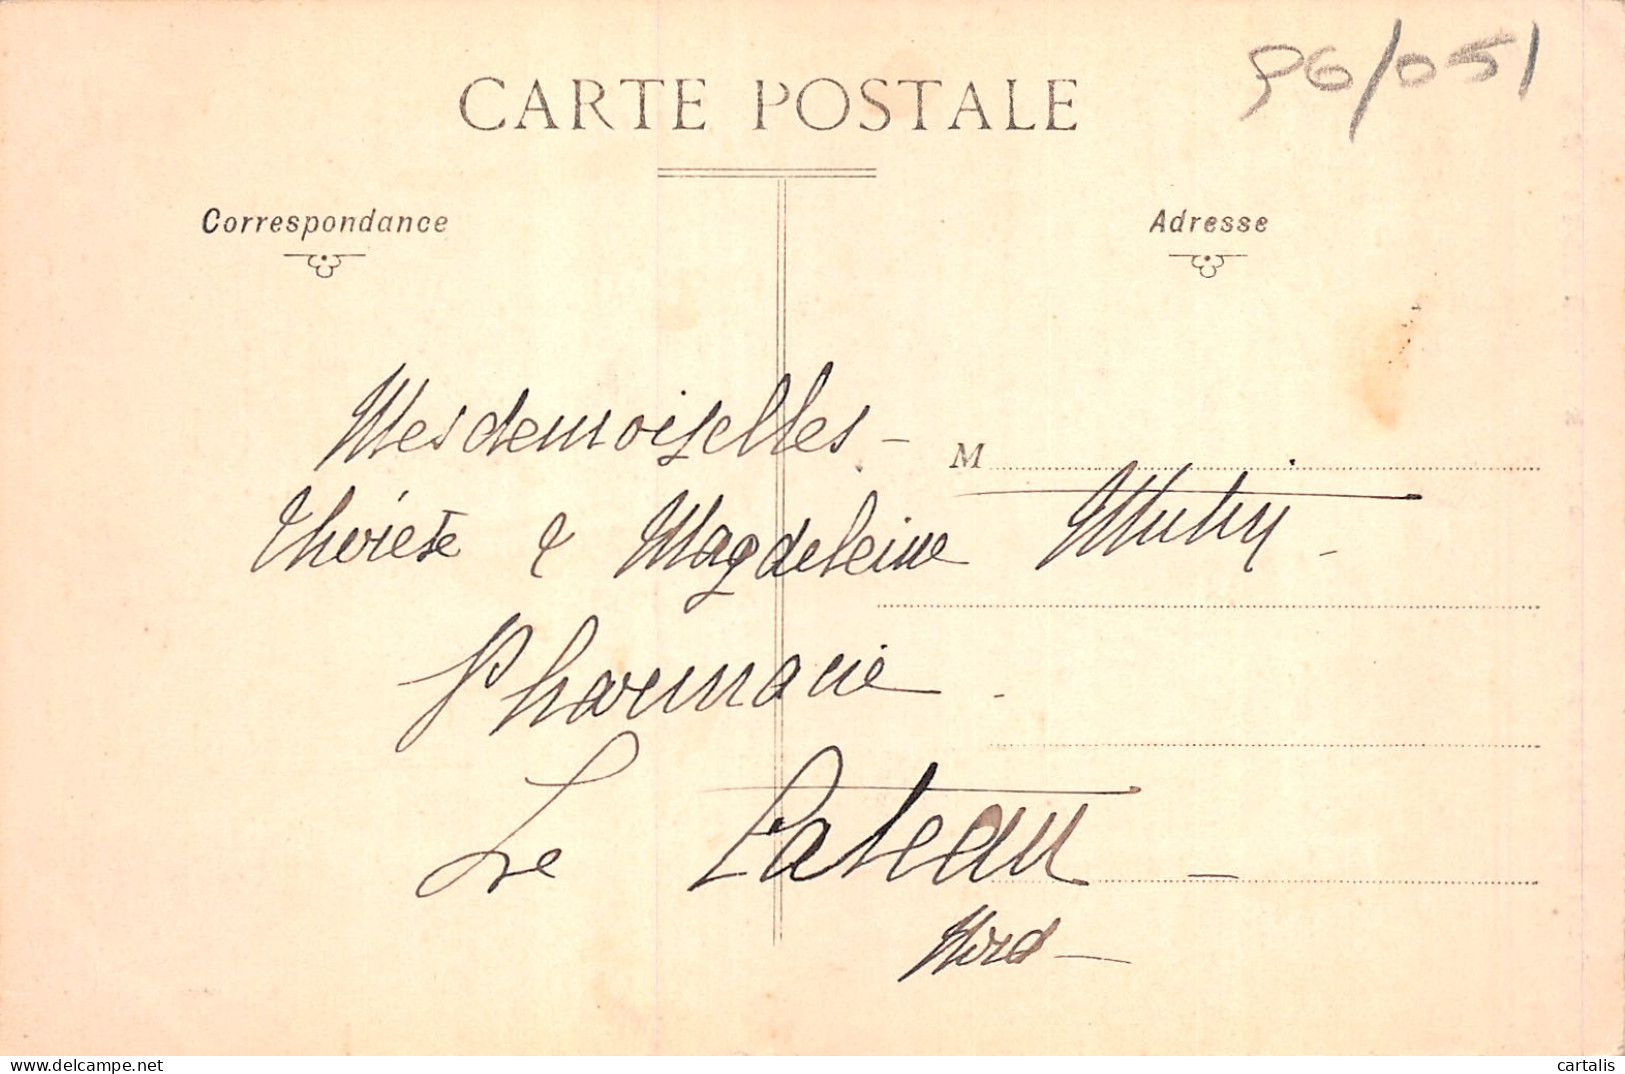 96/051
CARTE POSTALE
Correspondance
Adresse
Mesdemoiselles -
M
Thérèse & Magdeleine
Pharmacie
Le Cateau -
Nord -
delcampe.net
cartalis